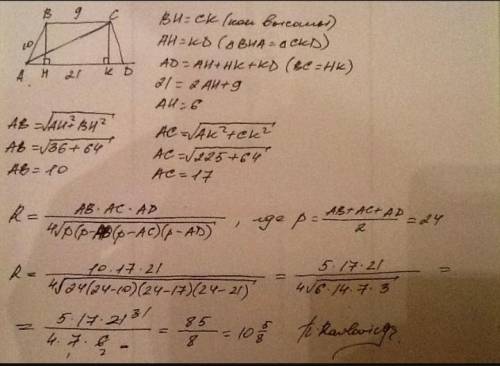 B 9 C
10
A H 21 K D
BH = CK (как высоты)
AH = KD (△BHA = △CKD)
AD = AH + HK + KD (BC = HK)
21 = 2AH + 9
AH = 6
AB = √AH² + BH²
AB = √36 + 64
AB = 10
AC = √AK² + CK²
AC = √225 + 64
AC = 17
R = AB · AC · AD / 4√p(p-AB)(p-AC)(p-AD) , где p = AB + AC + AD / 2 = 24
R = 10 · 17 · 21 / 4√24(24-10)(24-17)(24-21) = 5 · 17 · 21 / 4√6 · 14 · 7 · 3 =
= 5 · 17 · 21 3 1 / 4 · 7 · 6 1 2 = 85 / 8 = 10 5/8